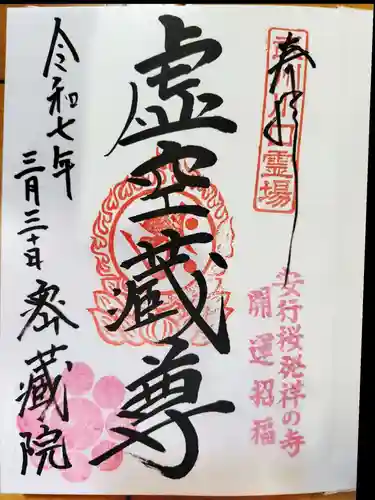 奉拝
霊場
安行桜発祥の寺
開運招福
虚空蔵尊
令和七年
三月三十日
密蔵院